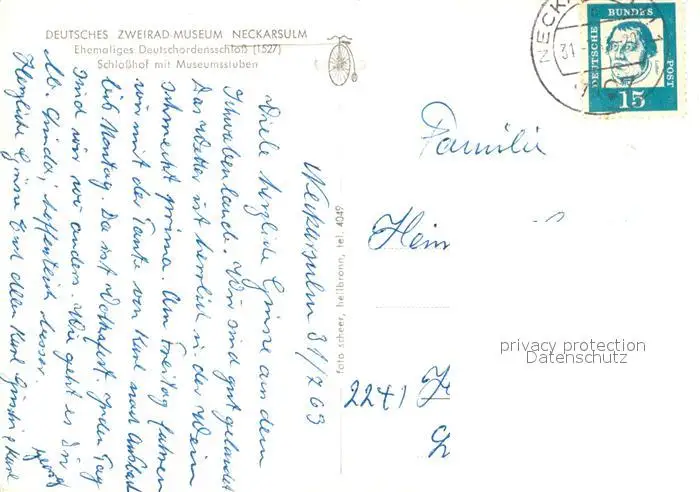 DEUTSCHES ZWEIRAD-MUSEUM NECKARSULM
Ehemaliges Deutschordensschloß (1527)
Schloßhof mit Museumsstuben
Neckarsulm 31/7 63
Viele herzliche Grüsse aus dem
Schwabenlande. Wir sind gut gelandet
Das Wetter ist herrlich u. der Wein
schmeckt prima. Am Freitag fahren
wir mit der Tante von Karl nach Ansbach
bis Montag. Da ist Volksfest. Jeden Tag
sind wir anders. Wie geht es Dir
lb. hoffentlich besser.
Herzliche Grüsse Euch allen Karl
foto scheer, heilbronn, tel. 4049
DEUTSCHE
BUNDES
POST
15
NECKA
31
Familie
Hein
2241
privacy protection
Datenschutz